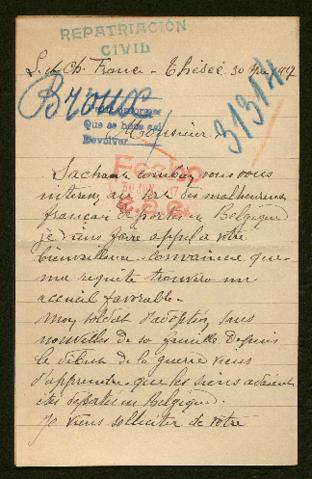 REPATRIACIÓN
CIVIL
L. et Ch. France - Thésée 30 1917
Broux
31314
Que se hace sal
Devolver
Monsieur.
Sachant combien vous vous
intéressez au sort des malheureux
français déportés en Belgique
je viens faire appel à votre
bienveillance - convaincue que
ma requête trouvera un
accueil favorable -
Mon soldat d'adoption, sans
nouvelles de sa famille depuis
le début de la guerre viens
d'apprendre que les siens
été déportés en Belgique.
Je viens solliciter de votre